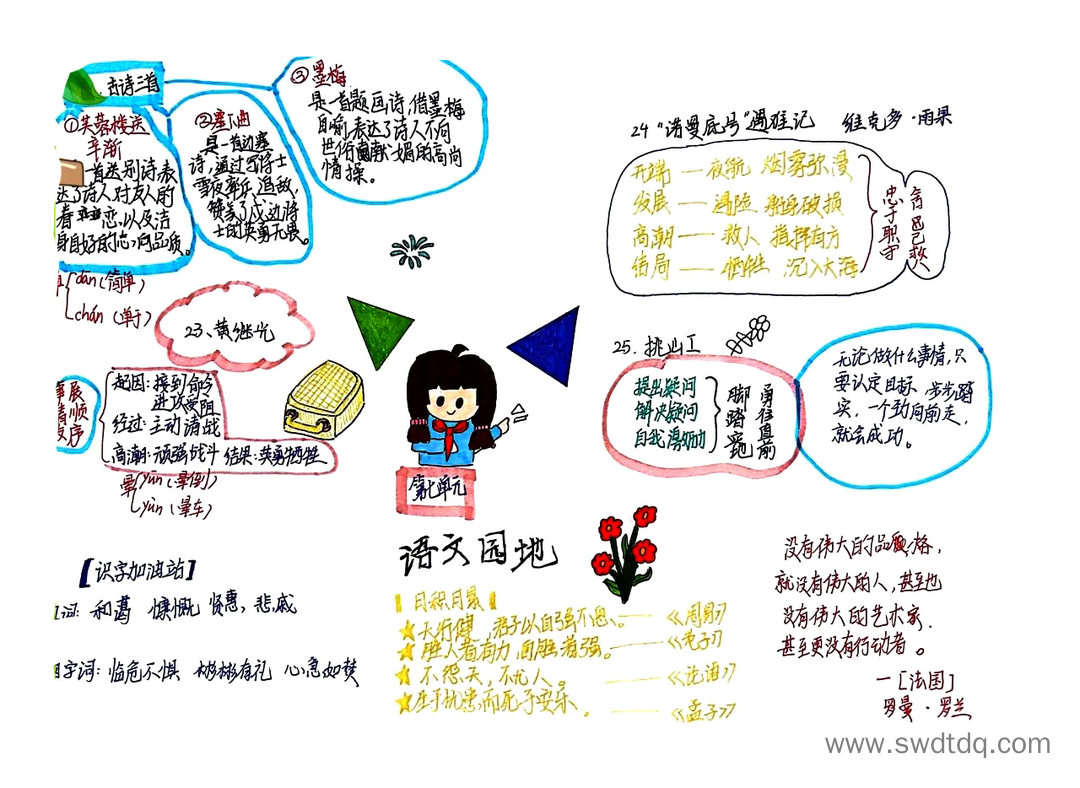 古诗三首
①芙蓉楼送
辛渐
一首送别诗,表
达了诗人对友人的
恋,以及洁
身自好的志向品质。
②塞下曲
是一首边塞
诗,通过写将士
雪夜弃兵追敌,
赞美了戍边将
士的英勇无畏。
③墨梅
是一首题画诗,借墨梅
自喻,表达了诗人不向
世俗献媚的高尚
情操。
dān(简单)
chán(单于)
23、黄继光
事情发展顺序
起因:接到命令
进攻受阻
经过:主动请战
高潮:顽强战斗 结果:英勇牺牲
晕
yūn(晕倒)
yùn(晕车)
24 "诺曼底号"遇难记 维克多·雨果
开端——夜航 烟雾弥漫
发展——遇险 船身破损
高潮——救人 指挥有方
结局——牺牲 沉入大海
忠于职守
舍己救人
25.挑山工
提出疑问
解决疑问
自我激励
脚踏实地
勇往直前
无论做什么事情,只
要认定目标,步步踏
实,一个劲向前走,
就会成功。
第七单元
语文园地
[识字加油站]
词: 和蔼 慷慨 贤惠, 悲戚
字词: 临危不惧 彬彬有礼 心急如焚
日积月累
★天行健,君子以自强不息。——《周易》
★胜人者有力,自胜者强。——《老子》
★不怨天,不尤人。——《论语》
★生于忧患,而死于安乐。——《孟子》
没有伟大的品格,
就没有伟大的人,甚至也
没有伟大的艺术家,
甚至更没有行动者。
—[法国]
罗曼·罗兰
www.swdtdq.com